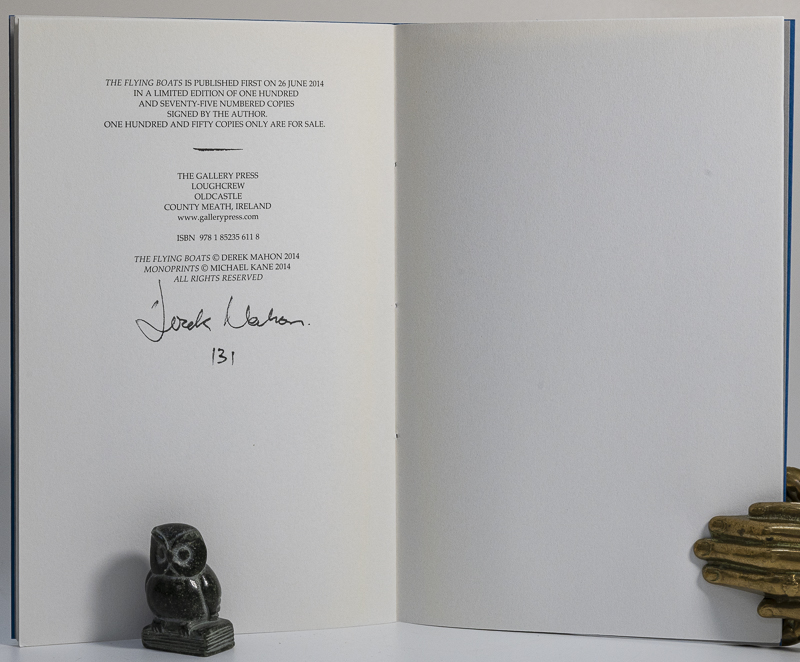 THE FLYING BOATS IS PUBLISHED FIRST ON 26 JUNE 2014
IN A LIMITED EDITION OF ONE HUNDRED
AND SEVENTY-FIVE NUMBERED COPIES
SIGNED BY THE AUTHOR.
ONE HUNDRED AND FIFTY COPIES ONLY ARE FOR SALE.
THE GALLERY PRESS
LOUGHCREW
OLDCASTLE
COUNTY MEATH, IRELAND
www.gallerypress.com
ISBN 978 1 85235 611 8
THE FLYING BOATS © DEREK MAHON 2014
MONOPRINTS © MICHAEL KANE 2014
ALL RIGHTS RESERVED
Derek Mahon.
131